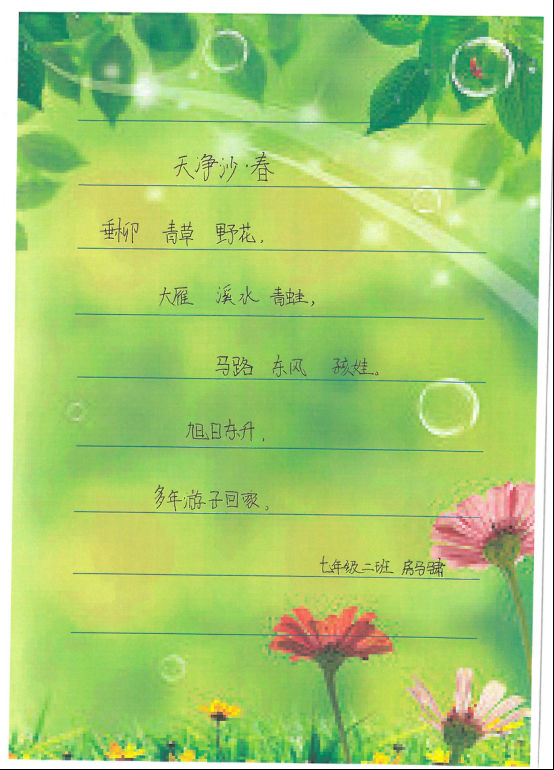 天净沙·春
垂柳 青草 野花,
大雁 溪水 青蛙,
马路 东风 孩娃。
旭日东升,
多年游子回家。
七年级二班 房马骕